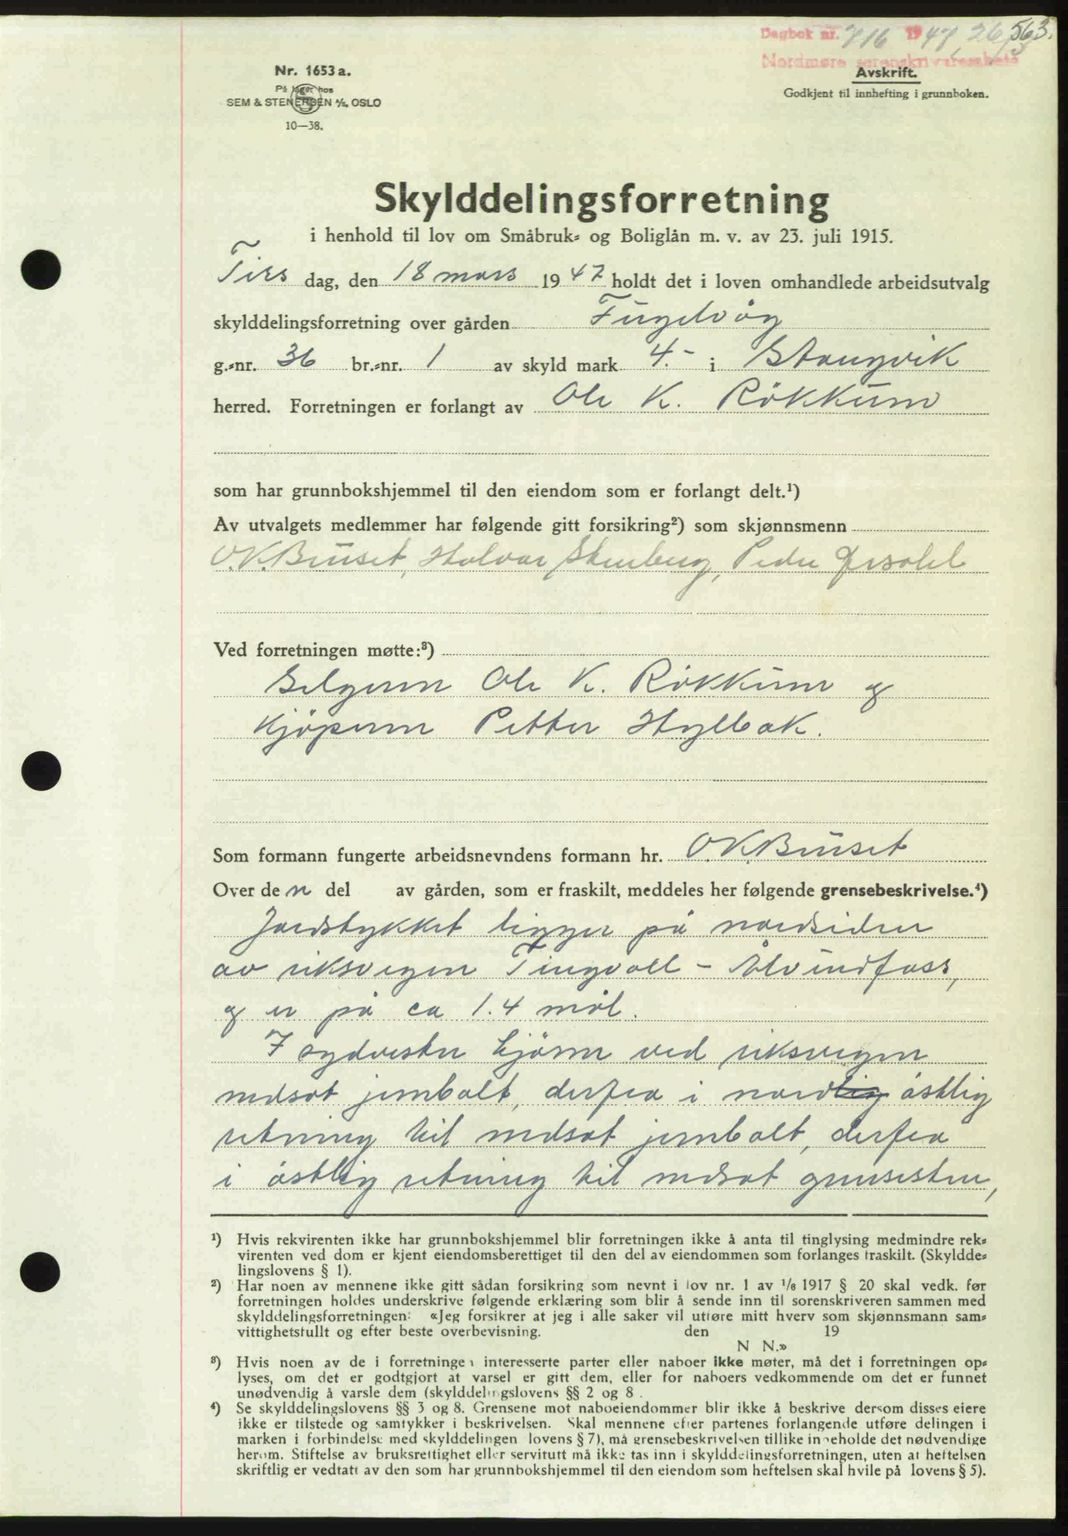 563.
Dagbok nr. 716 1947, 26/3
Nordmøre sorenskriverembete
Avskrift.
Godkjent til innhefting i grunnboken.
Nr. 1653 a.
På lager hos
SEM & STENERSEN A/S. OSLO
10—38.
Skylddelingsforretning
i henhold til lov om Småbruk- og Boliglån m. v. av 23. juli 1915.
Tirs dag, den 18 mars 1947 holdt det i loven omhandlede arbeidsutvalg
skylddelingsforretning over gården Fugelvåg
g.-nr. 36 br.-nr. 1 av skyld mark 4.- i Stangvik
herred. Forretningen er forlangt av Ole K. Røkkum
som har grunnbokshjemmel til den eiendom som er forlangt delt.¹)
Av utvalgets medlemmer har følgende gitt forsikring²) som skjønnsmenn
O.K. Bruset, Halvar Skeiberg, Peder
Ved forretningen møtte:³)
Selgeren Ole K. Røkkum og
kjøperen Petter Hylbak.
Som formann fungerte arbeidsnevndens formann hr. O.K. Bruset
Over de n del av gården, som er fraskilt, meddeles her følgende grensebeskrivelse.⁴)
Jordstykket ligger på nordsiden
av riksvegen Tingvoll - Ålvundfoss,
og er på ca 1.4 mål.
I sydvestre hjørne ved riksvegen
nedsat jernbolt, derfra i nordlig østlig
retning til nedsat jernbolt, derfra
i østlig retning til nedsat grensesten,
¹) Hvis rekvirenten ikke har grunnbokshjemmel blir forretningen ikke å anta til tinglysing medmindre rek-
virenten ved dom er kjent eiendomsberettiget til den del av eiendommen som forlanges fraskilt. (Skyldde-
lingslovens § 1).
²) Har noen av mennene ikke gitt sådan forsikring som nevnt i lov nr. 1 av 1/6 1917 § 20 skal vedk. før
forretningen holdes underskrive følgende erklæring som blir å sende inn til sorenskriveren sammen med
skylddelingsforretningen: «Jeg forsikrer at jeg i alle saker vil utføre mitt hverv som skjønnsmann sam-
vittighetsfullt og efter beste overbevisning. den 19
N N.»
³) Hvis noen av de i forretningen interesserte parter eller naboer ikke møter, må det i forretningen op-
lyses, om det er godtgjort at varsel er gitt dem, eller for naboers vedkommende om det er funnet
unødvendig å varsle dem (skylddelingslovens §§ 2 og 8.
⁴) Se skylddelingslovens §§ 3 og 8. Grensene mot naboeiendommer blir ikke å beskrive dersom disses eiere
ikke er tilstede og samtykker i beskrivelsen. Skal mennene efter partenes forlangende utføre delingen i
marken i forbindelse med skylddelingen lovens § 7), må grensebeskrivelsen tillike inneholde det nødvendige
herom. Stiftelse av bruksrettighet eller servitutt må ikke tas inn i skylddelingsforretningen, uten at heftelsen
skriftlig er vedtatt av den som har grunnbokshjemmel til den eiendom som heftelsen skal hvile på lovens § 5).